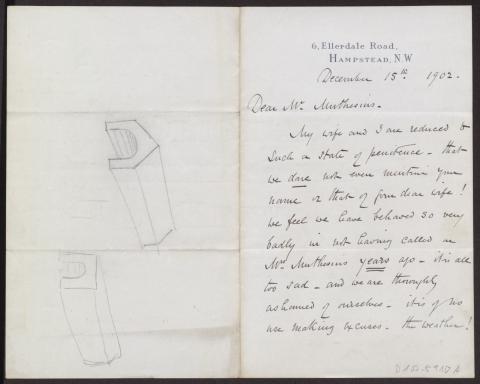 6, Ellerdale Road,
HAMPSTEAD, N.W
December 15th 1902.
Dear Mr. Muthesius.
My wife and I are reduced to
such a state of penitence - that
we dare not even mention your
name or that of your dear wife!
we feel we have behaved so very
badly in not having called on
Mrs Muthesius years ago - it is all
too sad - and we are thoroughly
ashamed of ourselves - it is of no
use making excuses - the weather!